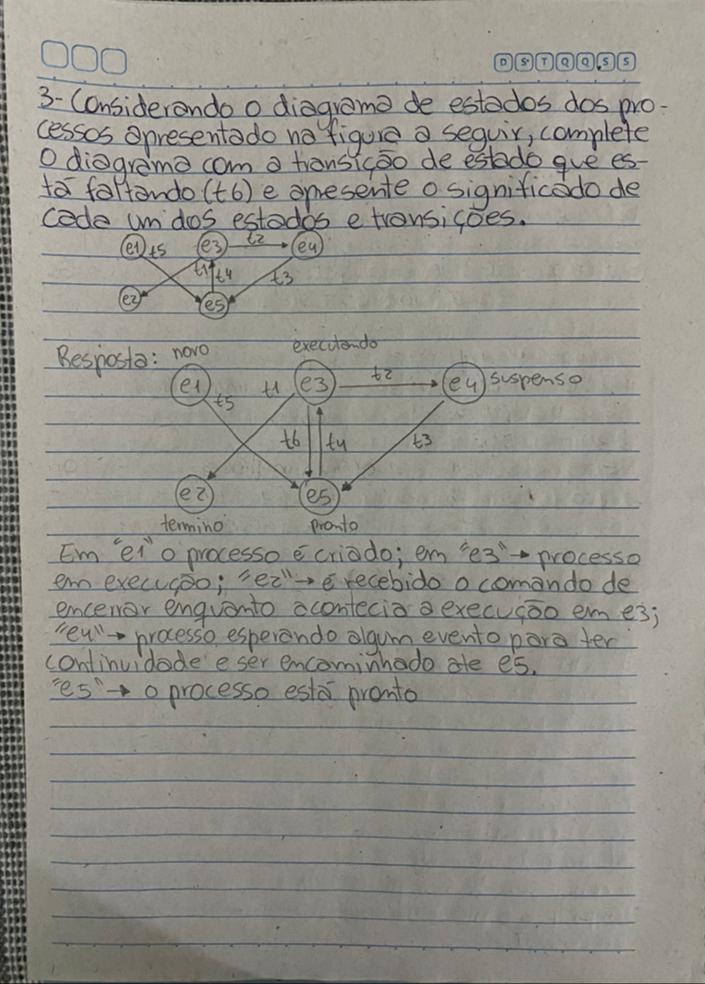 D S T Q Q S S
3- Considerando o diagrama de estados dos pro-
cessos apresentado na figura a seguir, complete
o diagrama com a transição de estado que es-
tá faltando (t6) e apresente o significado de
cada um dos estados e transições.
e1 t5 e3 t2 e4
t1 t4 t3
e2 e5
Resposta: novo executando
e1 t5 t1 e3 t2 e4 suspenso
t6 t4 t3
e2 e5
termino pronto
Em "e1" o processo é criado; em "e3" → processo
em execução; "e2" → é recebido o comando de
encerrar enquanto acontecia a execução em e3;
"e4" → processo esperando algum evento para ter
continuidade e ser encaminhado ate e5.
"e5" → o processo está pronto